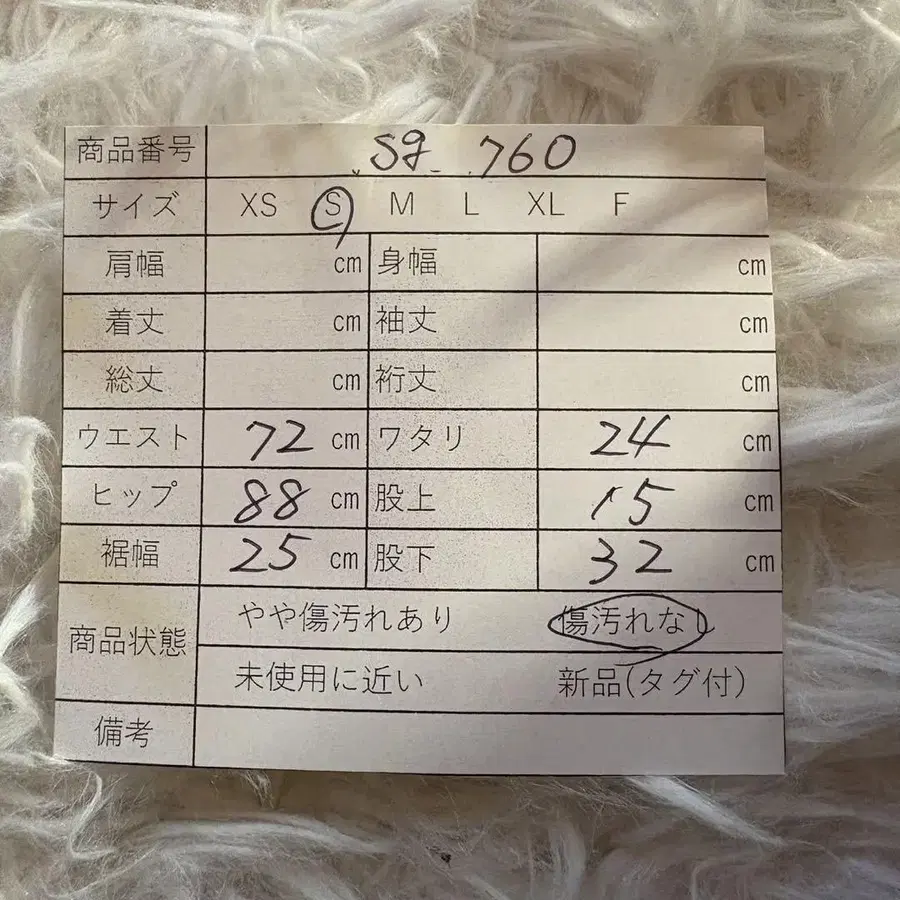 商品番号 sg 760
サイズ XS S M L XL F
肩幅 cm 身幅 cm
着丈 cm 袖丈 cm
総丈 cm 裄丈 cm
ウエスト 72 cm ワタリ 24 cm
ヒップ 88 cm 股上 15 cm
裾幅 25 cm 股下 32 cm
商品状態 やや傷汚れあり 傷汚れなし
未使用に近い 新品(タグ付)
備考